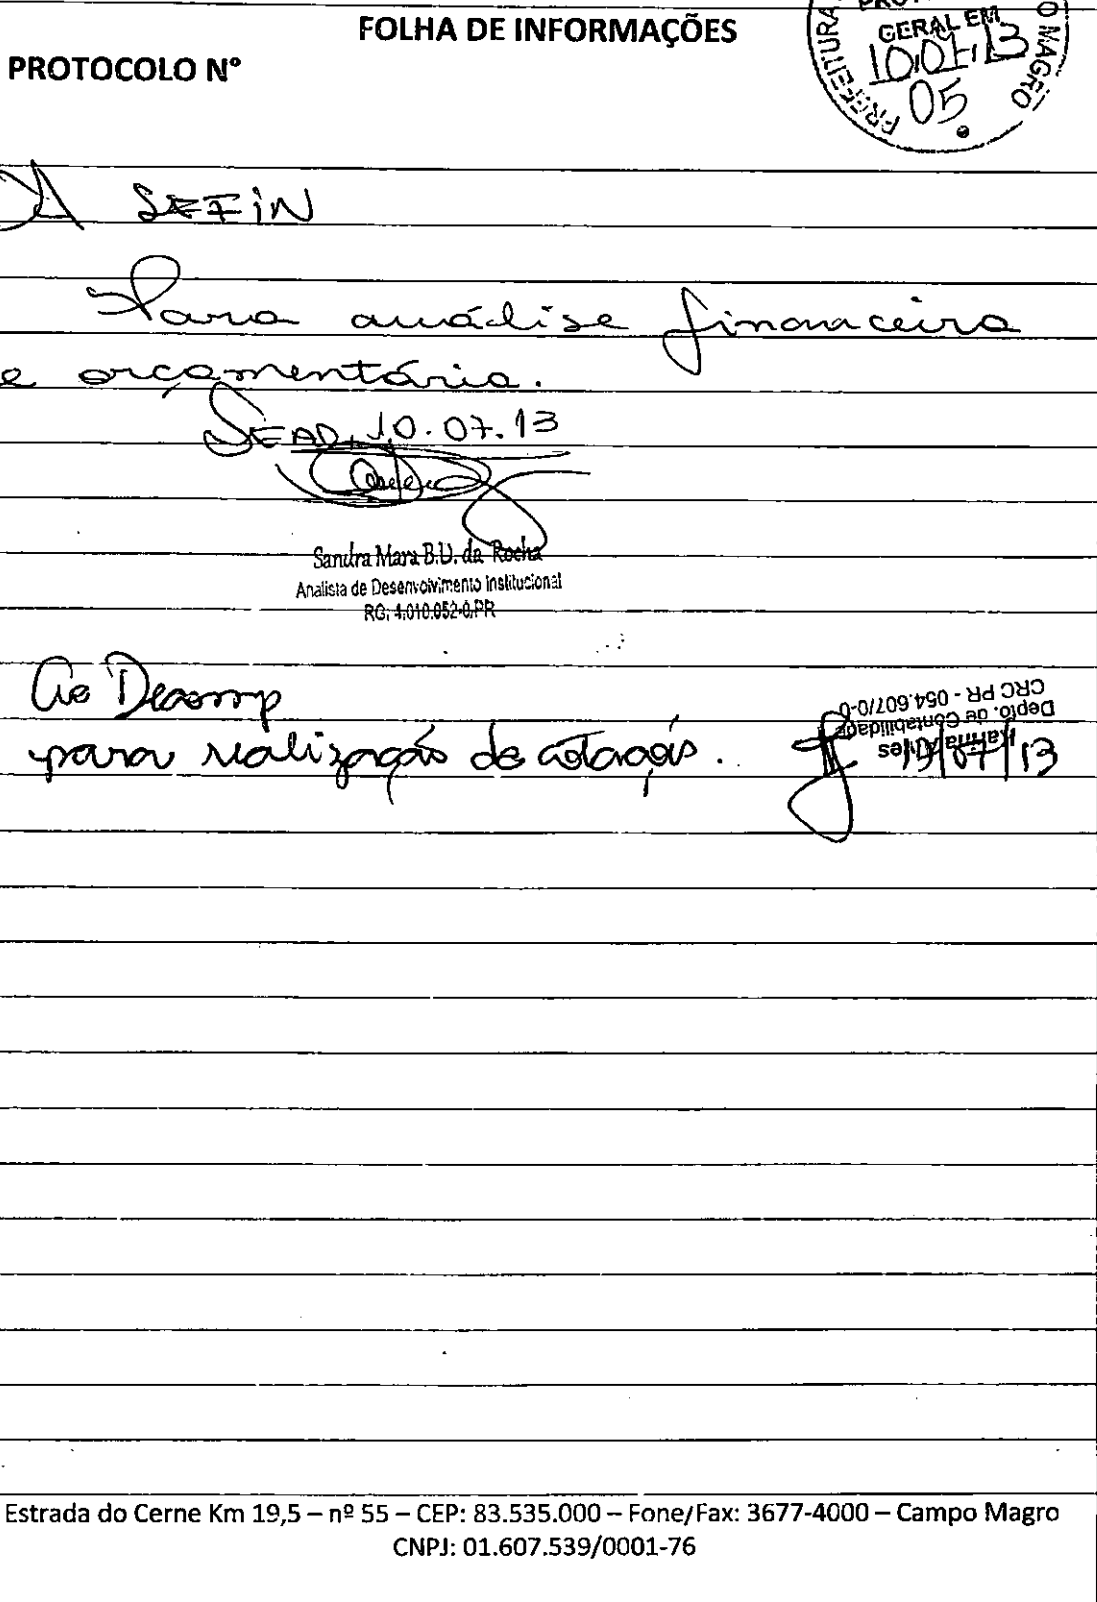 FOLHA DE INFORMAÇÕES
PREFEITURA O MAGRO
GERAL EM
10.07.13
05
PROTOCOLO N°
A SEFIN
Para análise financeira
e orçamentária.
SEAD, 10.07.13
Sandra Mara B.U. da Rocha
Analista de Desenvolvimento Institucional
RG: 4.010.052-0.PR
Ao Decomp
para realização de cotação.
Karina Alves
Depto. de Contabilidade
CRC PR - 054.607/0-0
/07/13
Estrada do Cerne Km 19,5 – nº 55 – CEP: 83.535.000 – Fone/Fax: 3677-4000 – Campo Magro
CNPJ: 01.607.539/0001-76